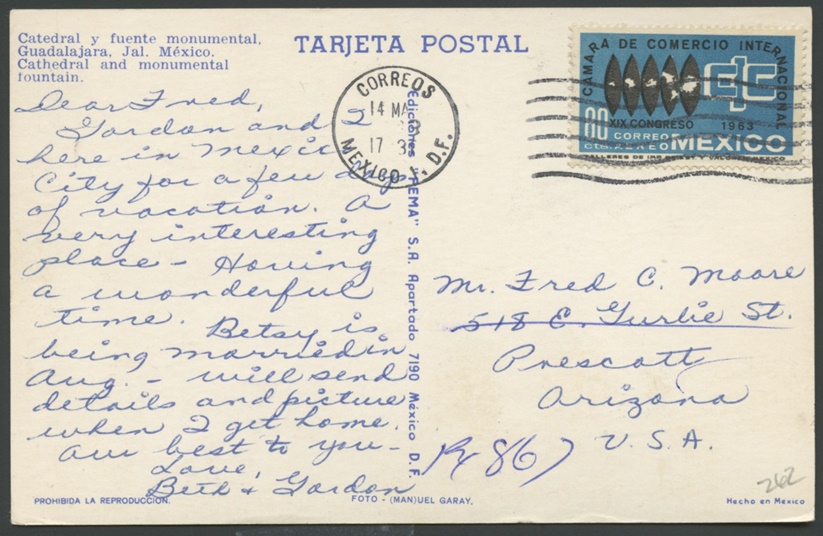 Catedral y fuente monumental,
Guadalajara, Jal. México.
Cathedral and monumental
fountain.
TARJETA POSTAL
Dear Fred,
Gordon and I
here in Mexico
City for a few days
of vacation. A
very interesting
place - Having
a wonderful
time. Betsy is
being married in
Aug. - will send
details and picture
when I get home.
Our best to you -
Love,
Beth & Gordon
PROHIBIDA LA REPRODUCCIÓN.
CORREOS
14 MA
17 3
MEXICO 1, D.F.
Ediciones "FEMA" S.A. Apartado 7190 México D.F.
FOTO - (MAN)UEL GARAY.
CAMARA DE COMERCIO INTERNACIONAL
CIC
XIX CONGRESO 1963
80
CORREO
AEREO MEXICO
Mr. Fred C. Moore
518 E. Gurlie St.
Prescott
Arizona
U.S.A.
867
262
Hecho en Mexico